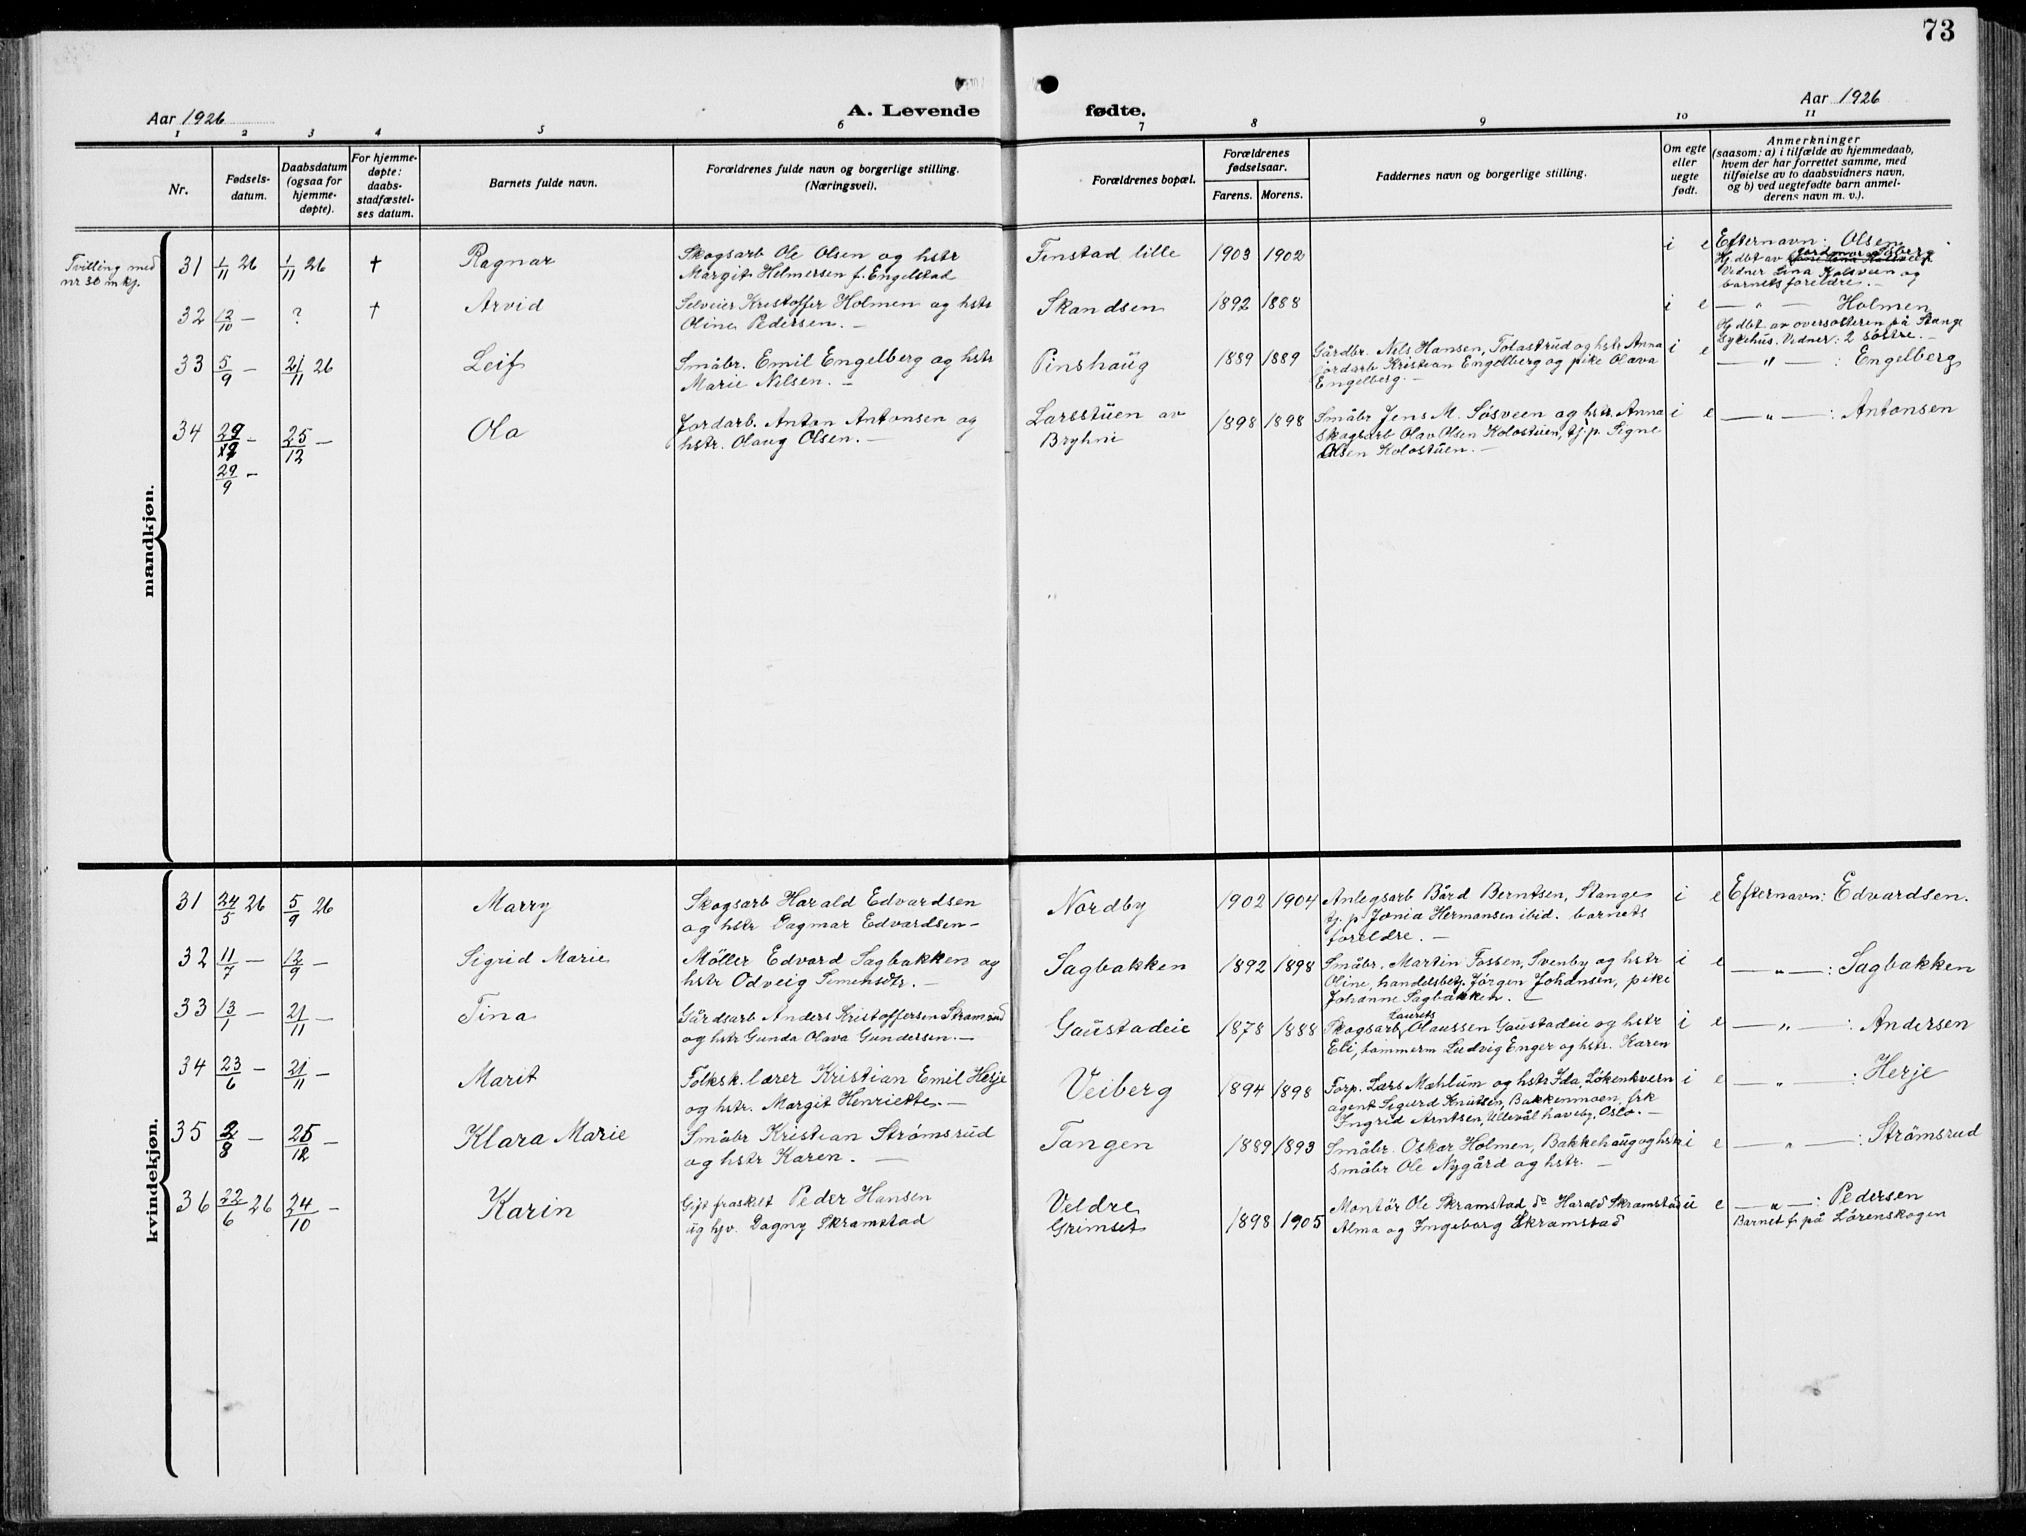 73
Aar 1926
A. Levende fødte.
Aar 1926
1 2 3 4 5 6 7 8 9 10 11
Nr.
Fødsels-
datum.
Daabsdatum
(ogsaa for
hjemme-
døpte).
For hjemme-
døpte:
daabs-
stadfæstel-
ses datum.
Barnets fulde navn.
Forældrenes fulde navn og borgerlige stilling.
(Næringsvei).
Forældrenes bopæl.
Forældrenes
fødselsaar.
Farens. Morens.
Faddernes navn og borgerlige stilling.
Om egte
eller
uegte
født.
Anmerkninger
(saasom: a) i tilfælde av hjemmedaab,
hvem der har forrettet samme, med
tilføielse av to daabsvidners navn,
og b) ved uegtefødte barn anmel-
derens navn m. v.).
mandkjøn.
Tvilling med
nr 30 m kj.
31 1/11 26 1/11 26 † Ragnar
Skogsarb Ole Olsen og hstr
Margit Helmersen f. Engelstad
Finstad lille 1903 1902
i e Efternavn: Olsen
Hj. dbt av jordmor Isberg
Vidner Lina Kolsveen og
barnets foreldre. —
32 12/10 — ? † Arvid
Selveier Kristoffer Holmen og hstr
Oline Pedersen. —
Skandsen 1892 1888
i e — " — Holmen
Hj dbt av oversøsteren på Stange
Sykehus. Vidner: 2 søstre. —
33 5/9 — 21/11 26 Leif
Småbr. Emil Engelberg og hstr
Marie Nilsen. —
Pinshaug 1889 1889
Gårdbr. Nils Hansen, Tolastrud og hstr Anna
jordarb Kristian Engelberg og pike Olava
Engelberg. —
i e — " — : Engelberg
34 29/12 — 25/12 — Ola
29/9 —
Jordarb. Anton Antonsen og
hstr. Olaug Olsen. —
Larsstuen av
Bryhni
1898 1898
Småbr Jens M. Søsveen og hstr. Anna
skogsarb Olav Olsen Kolostuen, tj. p. Signe
Olsen Kolostuen. —
i e — " — : Antonsen
kvindekjøn.
31 24/5 26 5/9 26 Marry
Skogsarb Harald Edvardsen
og hstr Dagmar Edvardsen —
Nordby 1902 1904
Anlegsarb Bård Berntsen, Stange
tj. p. Jonia Hermansen ibid. barnets
foreldre. —
i e Efternavn: Edvardsen.
32 11/7 — 12/9 — Sigrid Marie
Møller Edvard Sagbakken og
hstr Odveig Simensdtr. —
Sagbakken 1892 1898
Småbr. Martin Fossen, Svenby og hstr
Oline, handelsbetj. Jørgen Johansen, pike
Johanne Sagbakken. —
i e — " — : Sagbakken
33 13/1 — 21/11 — Tina
Gårdsarb Anders Kristoffersen Stramrud
og hstr Gunda Olava Gundersen. —
Gaustadeie 1878 1888
Skogsarb Laurits Olaussen Gaustadeie og hstr
Eli, tømmerm Ludvig Enger og hstr. Karen
i e — " — : Andersen
34 23/6 — 21/11 — Marit
Folksk. lærer Kristian Emil Herje
og hstr. Margit Henriette. —
Veiberg 1894 1898
Forp. Lars Mæhlum og hstr Ida, Løkenkvern
agent Sigurd Knutsen, Bakkenmoen, frk
Ingrid Arntsen, Ullevål haveby, Oslo. —
i e — " — : Herje
35 2/8 — 25/12 — Klara Marie
Småbr Kristian Strømsrud
og hstr Karen. —
Tangen 1889 1893
Småbr. Oskar Holmen, Bakkehaug og hstr
småbr Ole Nygård og hstr. —
i e — " — : Strømsrud
36 22/6 26 24/10 — Karin
Gift fraskilt Peder Hansen
ug hjv. Dagny Skramstad
Veldre
Grimset
1898 1905
Montør Ole Skramstad, do Harald Skramstad
Alma og Ingeborg Skramstad
u e — " — : Pedersen
Barnet f. på Lørenskogen